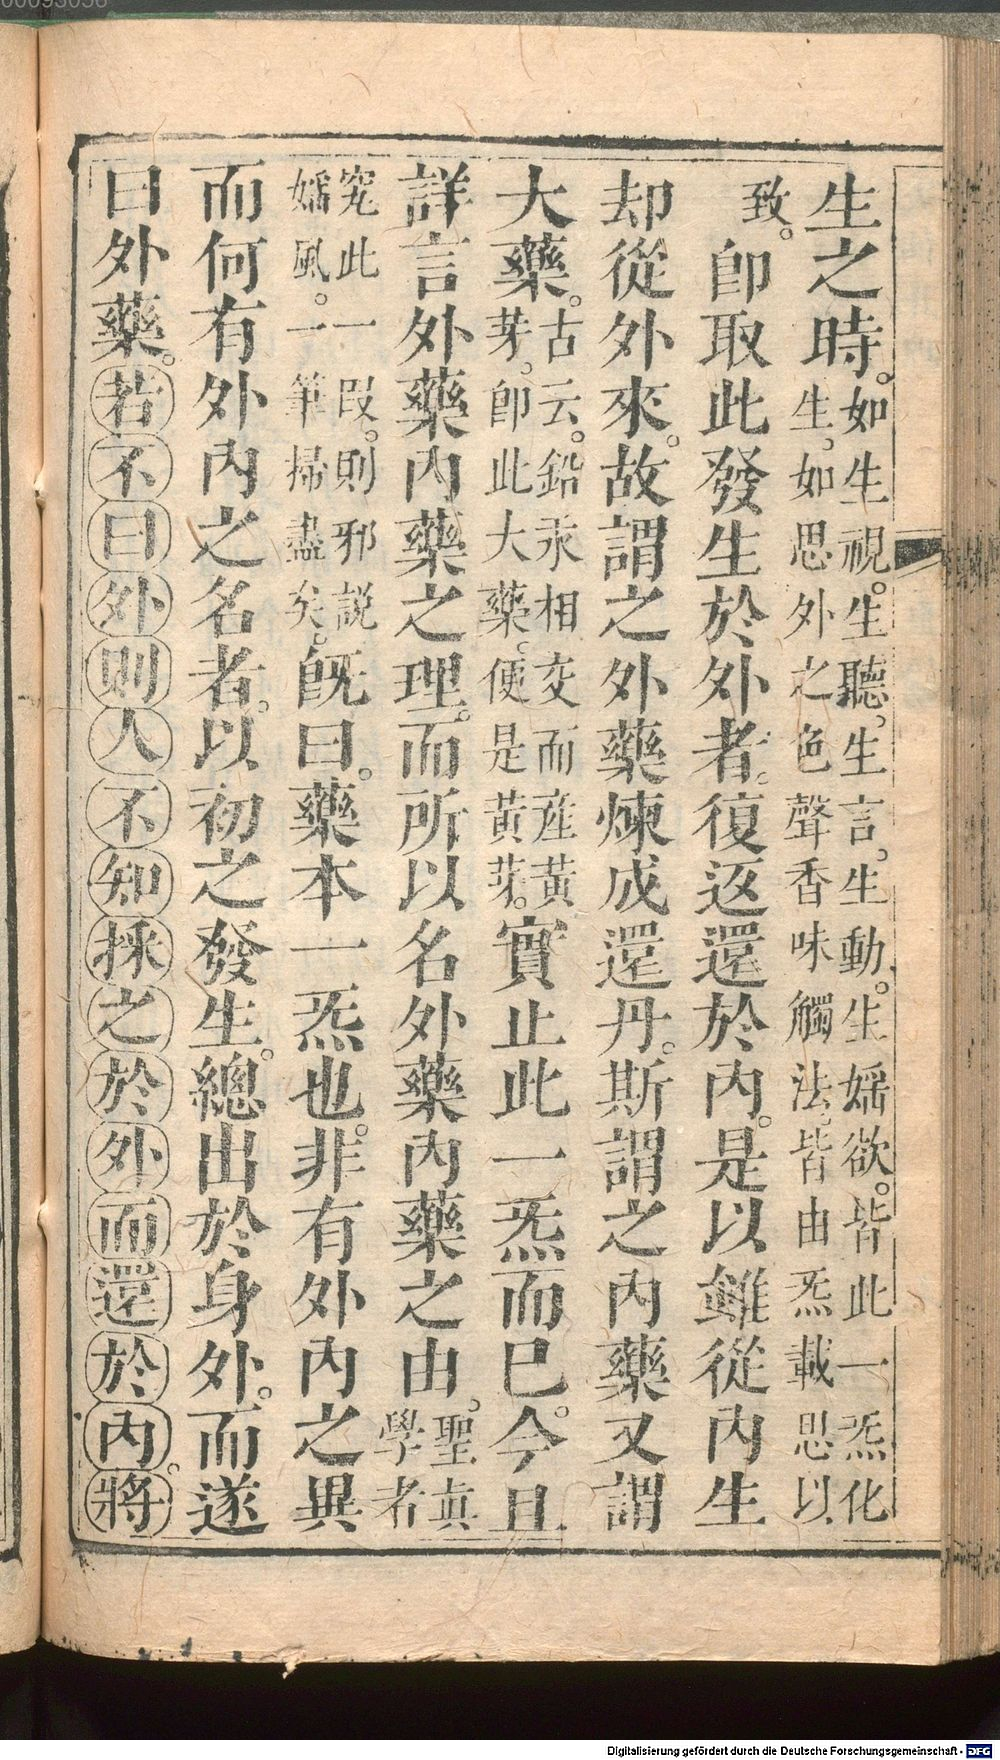 00093056
生之時。如生視。生聽、生言、生動。生婬欲。皆此一炁化
生、如思外之色聲香味觸法、皆由炁載思以
致。卽取此發生於外者。復返還於內。是以雖從內生
却從外來。故謂之外藥煉成還丹。斯謂之內藥又謂
大藥。古云。鉛汞相交而產黃
芽、卽此大藥。便是黃芽。實止此一炁而已。今且
詳言外藥內藥之理。而所以名外藥內藥之由。聖真
學者
究此一段。則邪說
婬風。一筆掃盡矣。旣曰。藥本一炁也。非有外內之異
而何有外內之名者。以初之發生。總出於身外。而遂
曰外藥。若不曰外則人不知採之於外而還於內。將
Digitalisierung gefördert durch die Deutsche Forschungsgemeinschaft - DFG